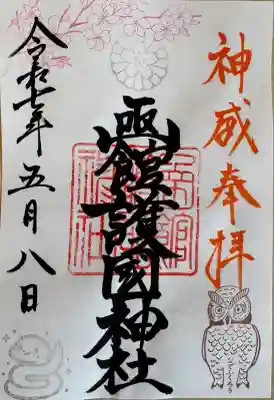 神威奉拝
函館護國神社
令和七年五月八日